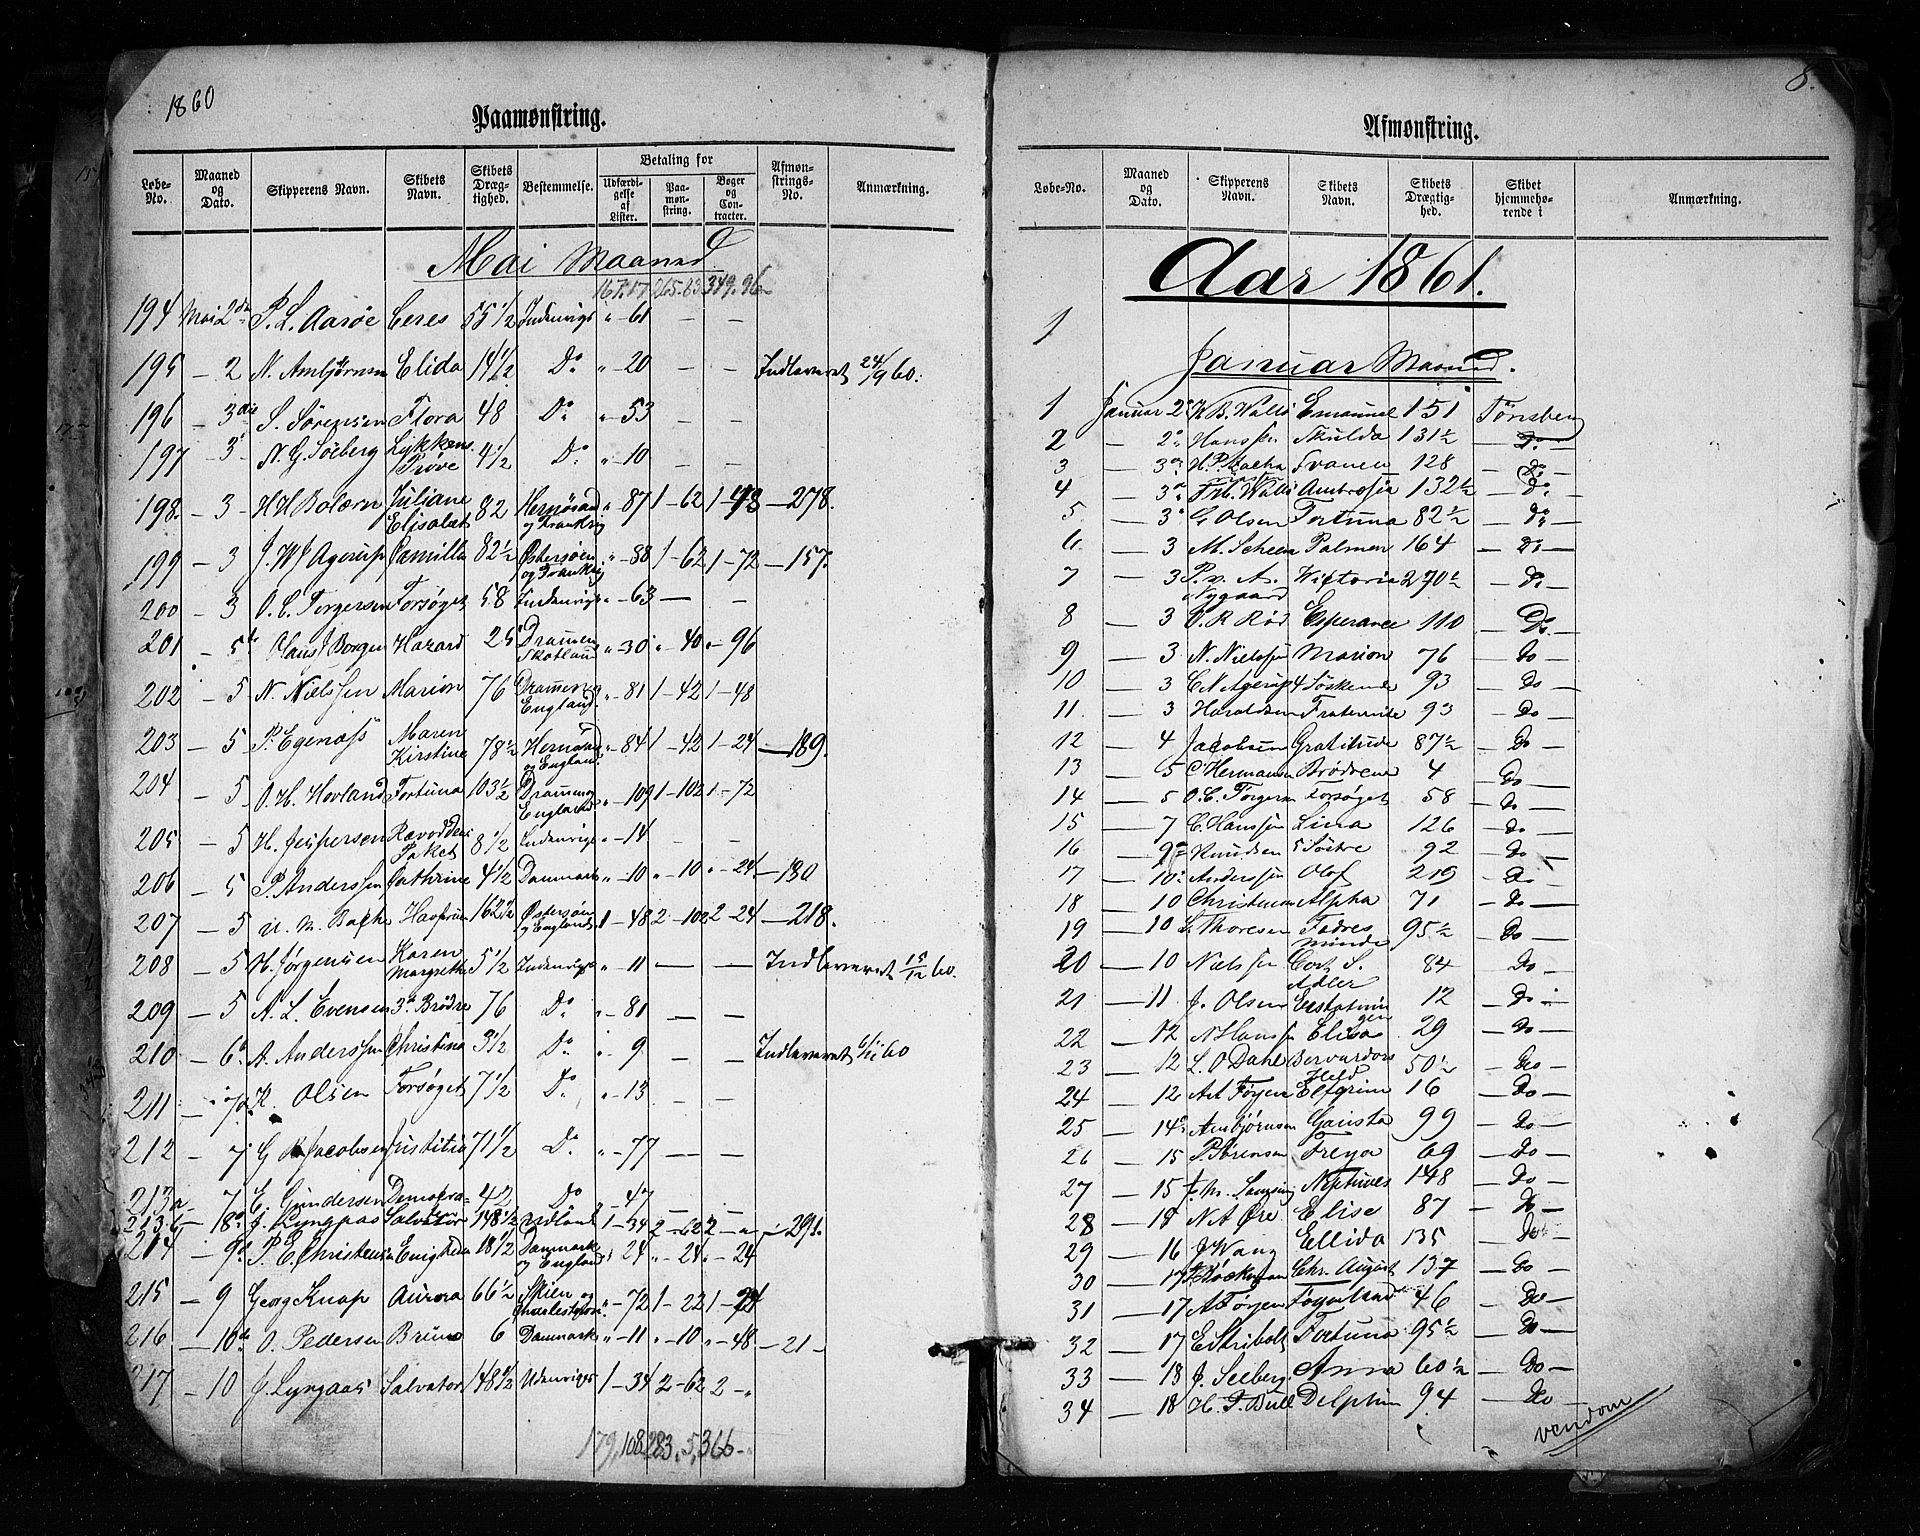 1860
Paamønstring.
Løbe-No. Maaned og Dato. Skipperens Navn. Skibets Navn. Skibets Drægtighed. Bestemmelse. Betaling for Udfærdigelse af Lister. Paamønstring. Bøger og Contracter. Afmønstrings-No. Anmærkning.
Mai Maaned
194 Mai 2den P. L. Aarøe Ceres 55 1/2 Indenrigs " - 61 — —
195 — 2 N. Ambjørnsen Elida 14 1/2 Do " - 20 — — Indleveret 24/9 60.
196 — 3die S. Sørensen Flora 48 Do " - 53 — —
197 — 3 N. G. Söeberg Lykkens Prøve 4 1/2 Do " - 10 — —
198. — 3 H H Bolærn Juliane Elisabet 82 Hernøsand og Frankrig " - 87 1 - 62 1 - 48 — 278.
199 — 3 J. W. Agerup Camilla 82 1/2 Østersøen og Frankrig " - 88 1 - 62 1 - 72 — 157.
200 — 3 O. C. Torgersen Forsøget 58 Indenrigs " - 63 — —
201 — 5te Hans J Borgen Hazard 25 Dramen Skotland " - 30 " - 40 " - 96
202 — 5 N. Nielssen Marion 76 Dramen og England. " - 81 1 - 42 1 - 48
203 — 5 P. Egenæss Maren Kirstine 78 1/2 Hernøsand og England. " - 84 1 - 42 1 - 24 — 189.
204 — 5 O. H. Hovland Fortuna 103 1/2 Dramen og England " - 109 1 - 102 1 - 72
205 — 5 H. Jespersen Rævoddens Paket 8 1/2 Indenrigs " - 14 — —
206 — 5 P. Anderssen Cathrine 4 1/2 Danmark " - 10 " - 10 " - 24 — 180
207 — 5 U. M. Bache Havfruen 162 1/2 Østersøen og England 1 - 48 2 - 102 2 - 24 — 218.
208 — 5 H. Jörgensen Karen Margrethe 5 1/2 Indenrigs " - 11 — — Indleveret 15/12 60.
209 — 5 A. L. Evensen 3de Brødre 76 Do " - 81 — —
210 — 6 A. Anderssen Christina 3 1/2 Do " 9 — — Indleveret 6/11 60
211 — 7de K. Olsen Forsøget 7 1/2 Do " - 13
212 — 7 G Jacobsen Justitia 71 1/2 Do " - 77 — —
213a — 7 E. Gundersen 42 Do " - 47
213b — 8de J. Lyngaas Salvator 148 1/2 Udland 1 - 34 2 - 62 2 - " — 291.
214 — 9de P. E. Christensen Enigheden 18 1/2 Danmark og England " 24 " - 24 " - 24
215 — 9 Georg Knap Aurora 66 1/2 Skien og " - 72 1 - 22 1 - 24
216 — 10de O. Pedersen Bruno 6 Danmark " - 11 " - 10 " - 48 — 21 -
217 — 10 J. Lyngaas Salvator 148 1/2 Udenrigs 1 - 34 2 - 62 2 - "
8.
Afmønstring.
Løbe-No. Maaned og Dato. Skipperens Navn. Skibets Navn. Skibets Drægtighed. Skibet hjemmehørende i Anmærkning.
Aar 1861.
1
Januar Maaned.
1 Januar 2 Emanuel 151 Tönsberg
2 — 2 Hanssen Skulda 131 1/2 — Do —
3 — 3 H. P. Bache Svanen 128 — Do
4 — 3 Ambrosia 132 1/2 — Do —
5 — 3 G. Olsen Fortuna 82 1/2 — Do —
6 — 3 M. Scheen Palmen 164 — Do —
7 — 3 P. v. A. Nygaard Wiktoria 270 1/2 — Do —
8 — 3 O. R Röd Esperance 110 — Do —
9 — 3 N. Nielssen Marion 76 — Do —
10 — 3 C. N. Agerup 4 Söskende 93 — Do —
11 — 3 Haraldsen Fraternite 93 — Do —
12 — 4 Jacobsen Gratitude 87 1/2 — Do —
13 — 5 C Hermansen Brödrene 4 — Do —
14 — 5 O. C. Torgersen Forsøget 58 — Do —
15 — 7 C. Hanssen Lina 126 — Do —
16 — 9 Knudsen 5 Söstre 92 — Do —
17 — 10 Anderssen Olof 219 — Do —
18 — 10 Christensen Alpha 71 — Do —
19 — 10 L. Thoresen Fædres minde 95 1/2 — Do —
20 — 10 Nielssen Cort S. Adler 84 — Do
21 — 11 J. Olsen 12 — Do —
22 — 12 N Hanssen Elisa 29 — Do —
23 — 12 L. O Dahl 50 1/2 — Do —
24 — 12 Ant Föyen Elfgrim 16 — Do —
25 — 14 Ambjörnsen Gausta 99 — Do —
26 — 15 P. Sörensen Freya 69 — Do —
27 — 15 J. M. Neptunes 148 — Do —
28 — 18 N A Øre Elise 87 — Do —
29 — 16 J Wang Ellida 135 — Do —
30 — 17 Chr. August 137 — Do —
31 — 17 A Föyen Föynland 46 — Do —
32 — 17 E Stribolt Fortuna 95 1/2 — Do —
33 — 18 J. Seeberg Anna 60 1/2 — Do —
34 — 18 H. J. Bull Delphin 94 — Do
vendom